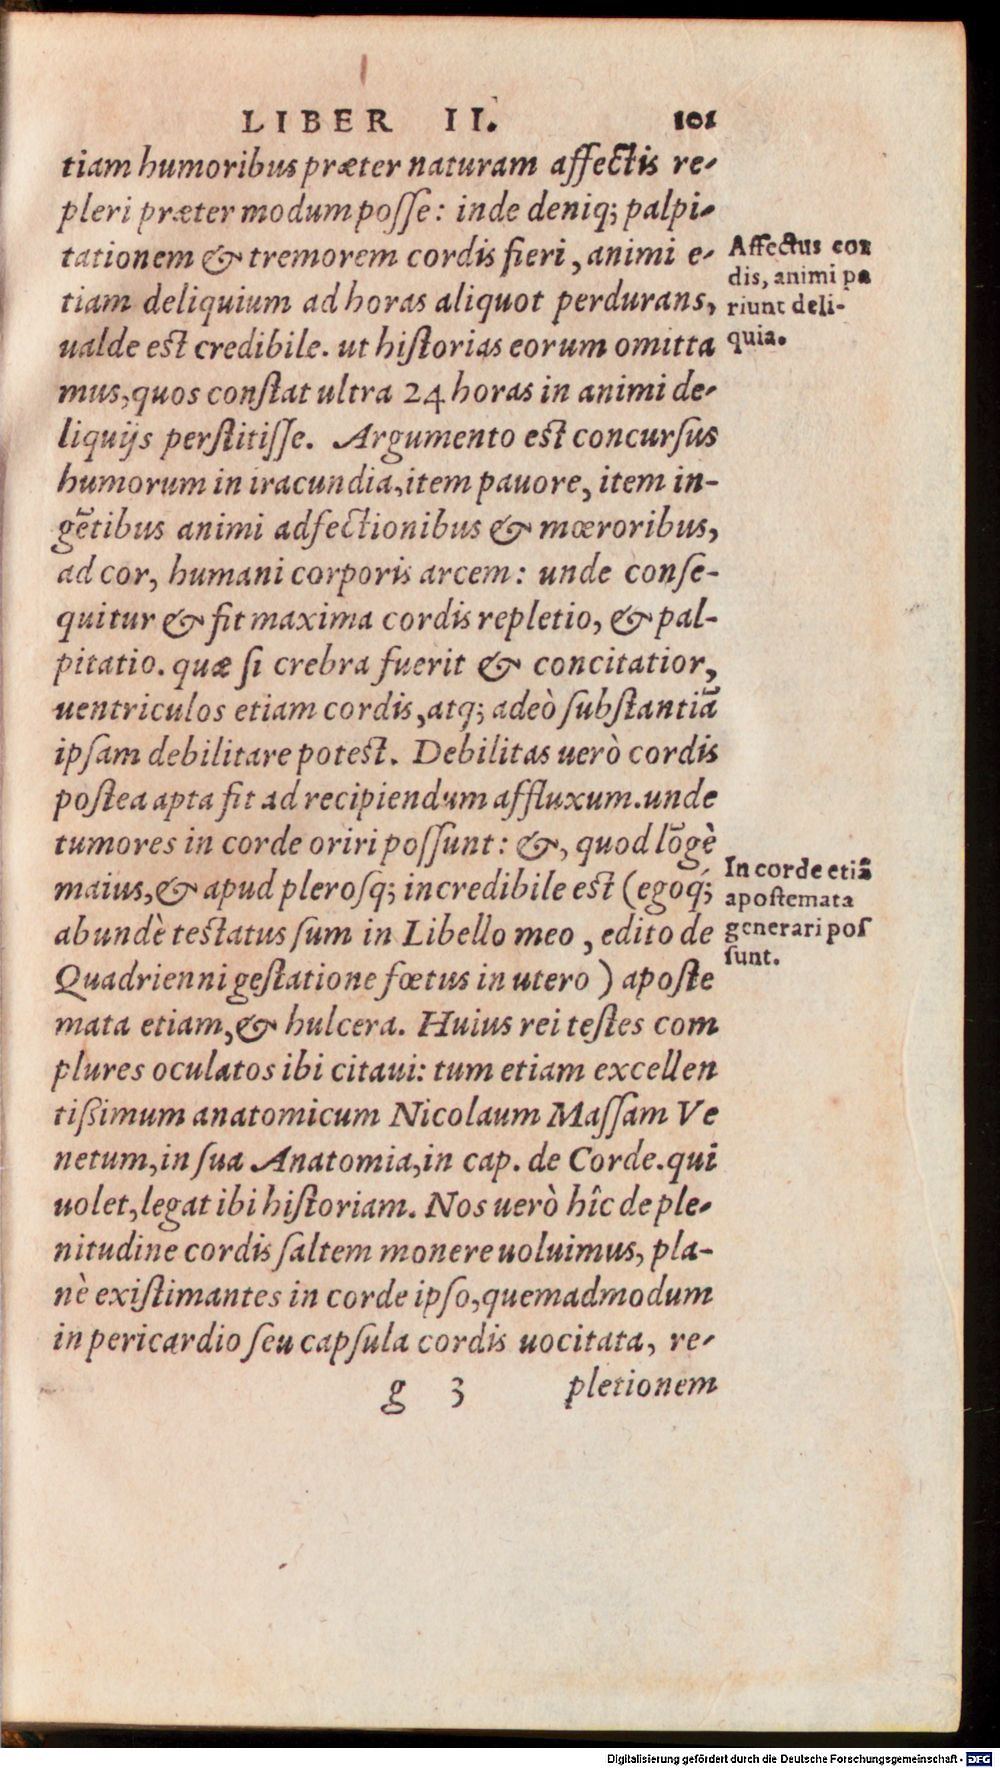 LIBER II. 101
tiam humoribus præter naturam affectis re-
pleri præter modum posse: inde deniq; palpi-
tationem & tremorem cordis fieri, animi e-
tiam deliquium ad horas aliquot perdurans,
ualde est credibile. ut historias eorum omitta
mus, quos constat ultra 24 horas in animi de-
liquijs perstitisse. Argumento est concursus
humorum in iracundia, item pauore, item in-
gẽtibus animi adfectionibus & mœroribus,
ad cor, humani corporis arcem: unde conse-
quitur & fit maxima cordis repletio, & pal-
pitatio. quæ si crebra fuerit & concitatior,
uentriculos etiam cordis, atq; adeò substantiã
ipsam debilitare potest. Debilitas uerò cordis
postea apta fit ad recipiendum affluxum. unde
tumores in corde oriri possunt: &, quod lõgè
maius, & apud plerosq; incredibile est (egoq́;
abundè testatus sum in Libello meo, edito de
Quadrienni gestatione fœtus in utero) aposte
mata etiam, & hulcera. Huius rei testes com
plures oculatos ibi citaui: tum etiam excellen
tißimum anatomicum Nicolaum Massam Ve
netum, in sua Anatomia, in cap. de Corde. qui
uolet, legat ibi historiam. Nos uerò hîc de ple-
nitudine cordis saltem monere uoluimus, pla-
nè existimantes in corde ipso, quemadmodum
in pericardio seu capsula cordis uocitata, re-
g 3 pletionem
Affectus cor
dis, animi pa
riunt deli-
quia.
In corde etiã
apostemata
generari pos
sunt.
Digitalisierung gefördert durch die Deutsche Forschungsgemeinschaft - DFG